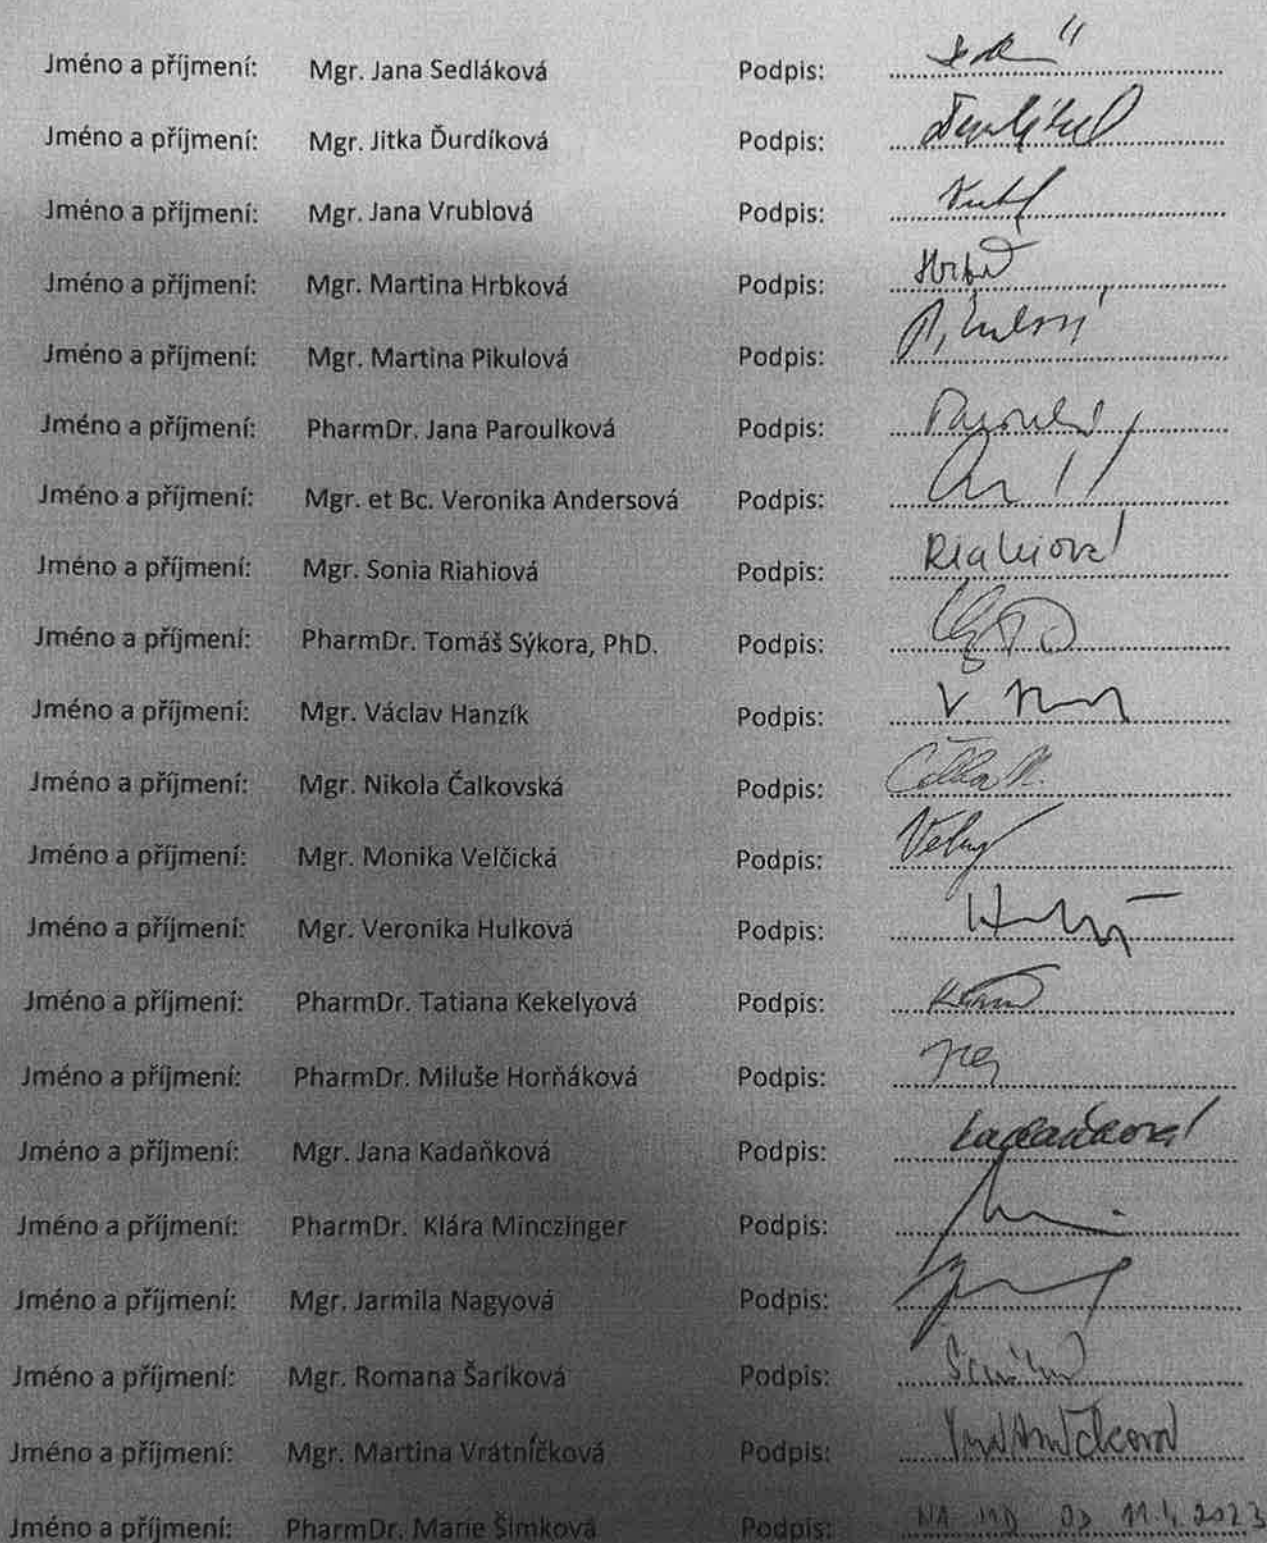 Jméno a příjmení: Mgr. Jana Sedláková Podpis:
Jméno a příjmení: Mgr. Jitka Ďurdíková Podpis:
Jméno a příjmení: Mgr. Jana Vrublová Podpis:
Jméno a příjmení: Mgr. Martina Hrbková Podpis:
Jméno a příjmení: Mgr. Martina Pikulová Podpis:
Jméno a příjmení: PharmDr. Jana Paroulková Podpis:
Jméno a příjmení: Mgr. et Bc. Veronika Andersová Podpis:
Jméno a příjmení: Mgr. Sonia Riahiová Podpis: Riahiová
Jméno a příjmení: PharmDr. Tomáš Sýkora, PhD. Podpis:
Jméno a příjmení: Mgr. Václav Hanzík Podpis:
Jméno a příjmení: Mgr. Nikola Čalkovská Podpis:
Jméno a příjmení: Mgr. Monika Velčická Podpis:
Jméno a příjmení: Mgr. Veronika Hulková Podpis:
Jméno a příjmení: PharmDr. Tatiana Kekelyová Podpis:
Jméno a příjmení: PharmDr. Miluše Horňáková Podpis:
Jméno a příjmení: Mgr. Jana Kadaňková Podpis: Kadaňková
Jméno a příjmení: PharmDr. Klára Minczinger Podpis:
Jméno a příjmení: Mgr. Jarmila Nagyová Podpis:
Jméno a příjmení: Mgr. Romana Šaríková Podpis:
Jméno a příjmení: Mgr. Martina Vrátníčková Podpis:
Jméno a příjmení: PharmDr. Marie Šimková Podpis: NA MD OD 11.4.2023